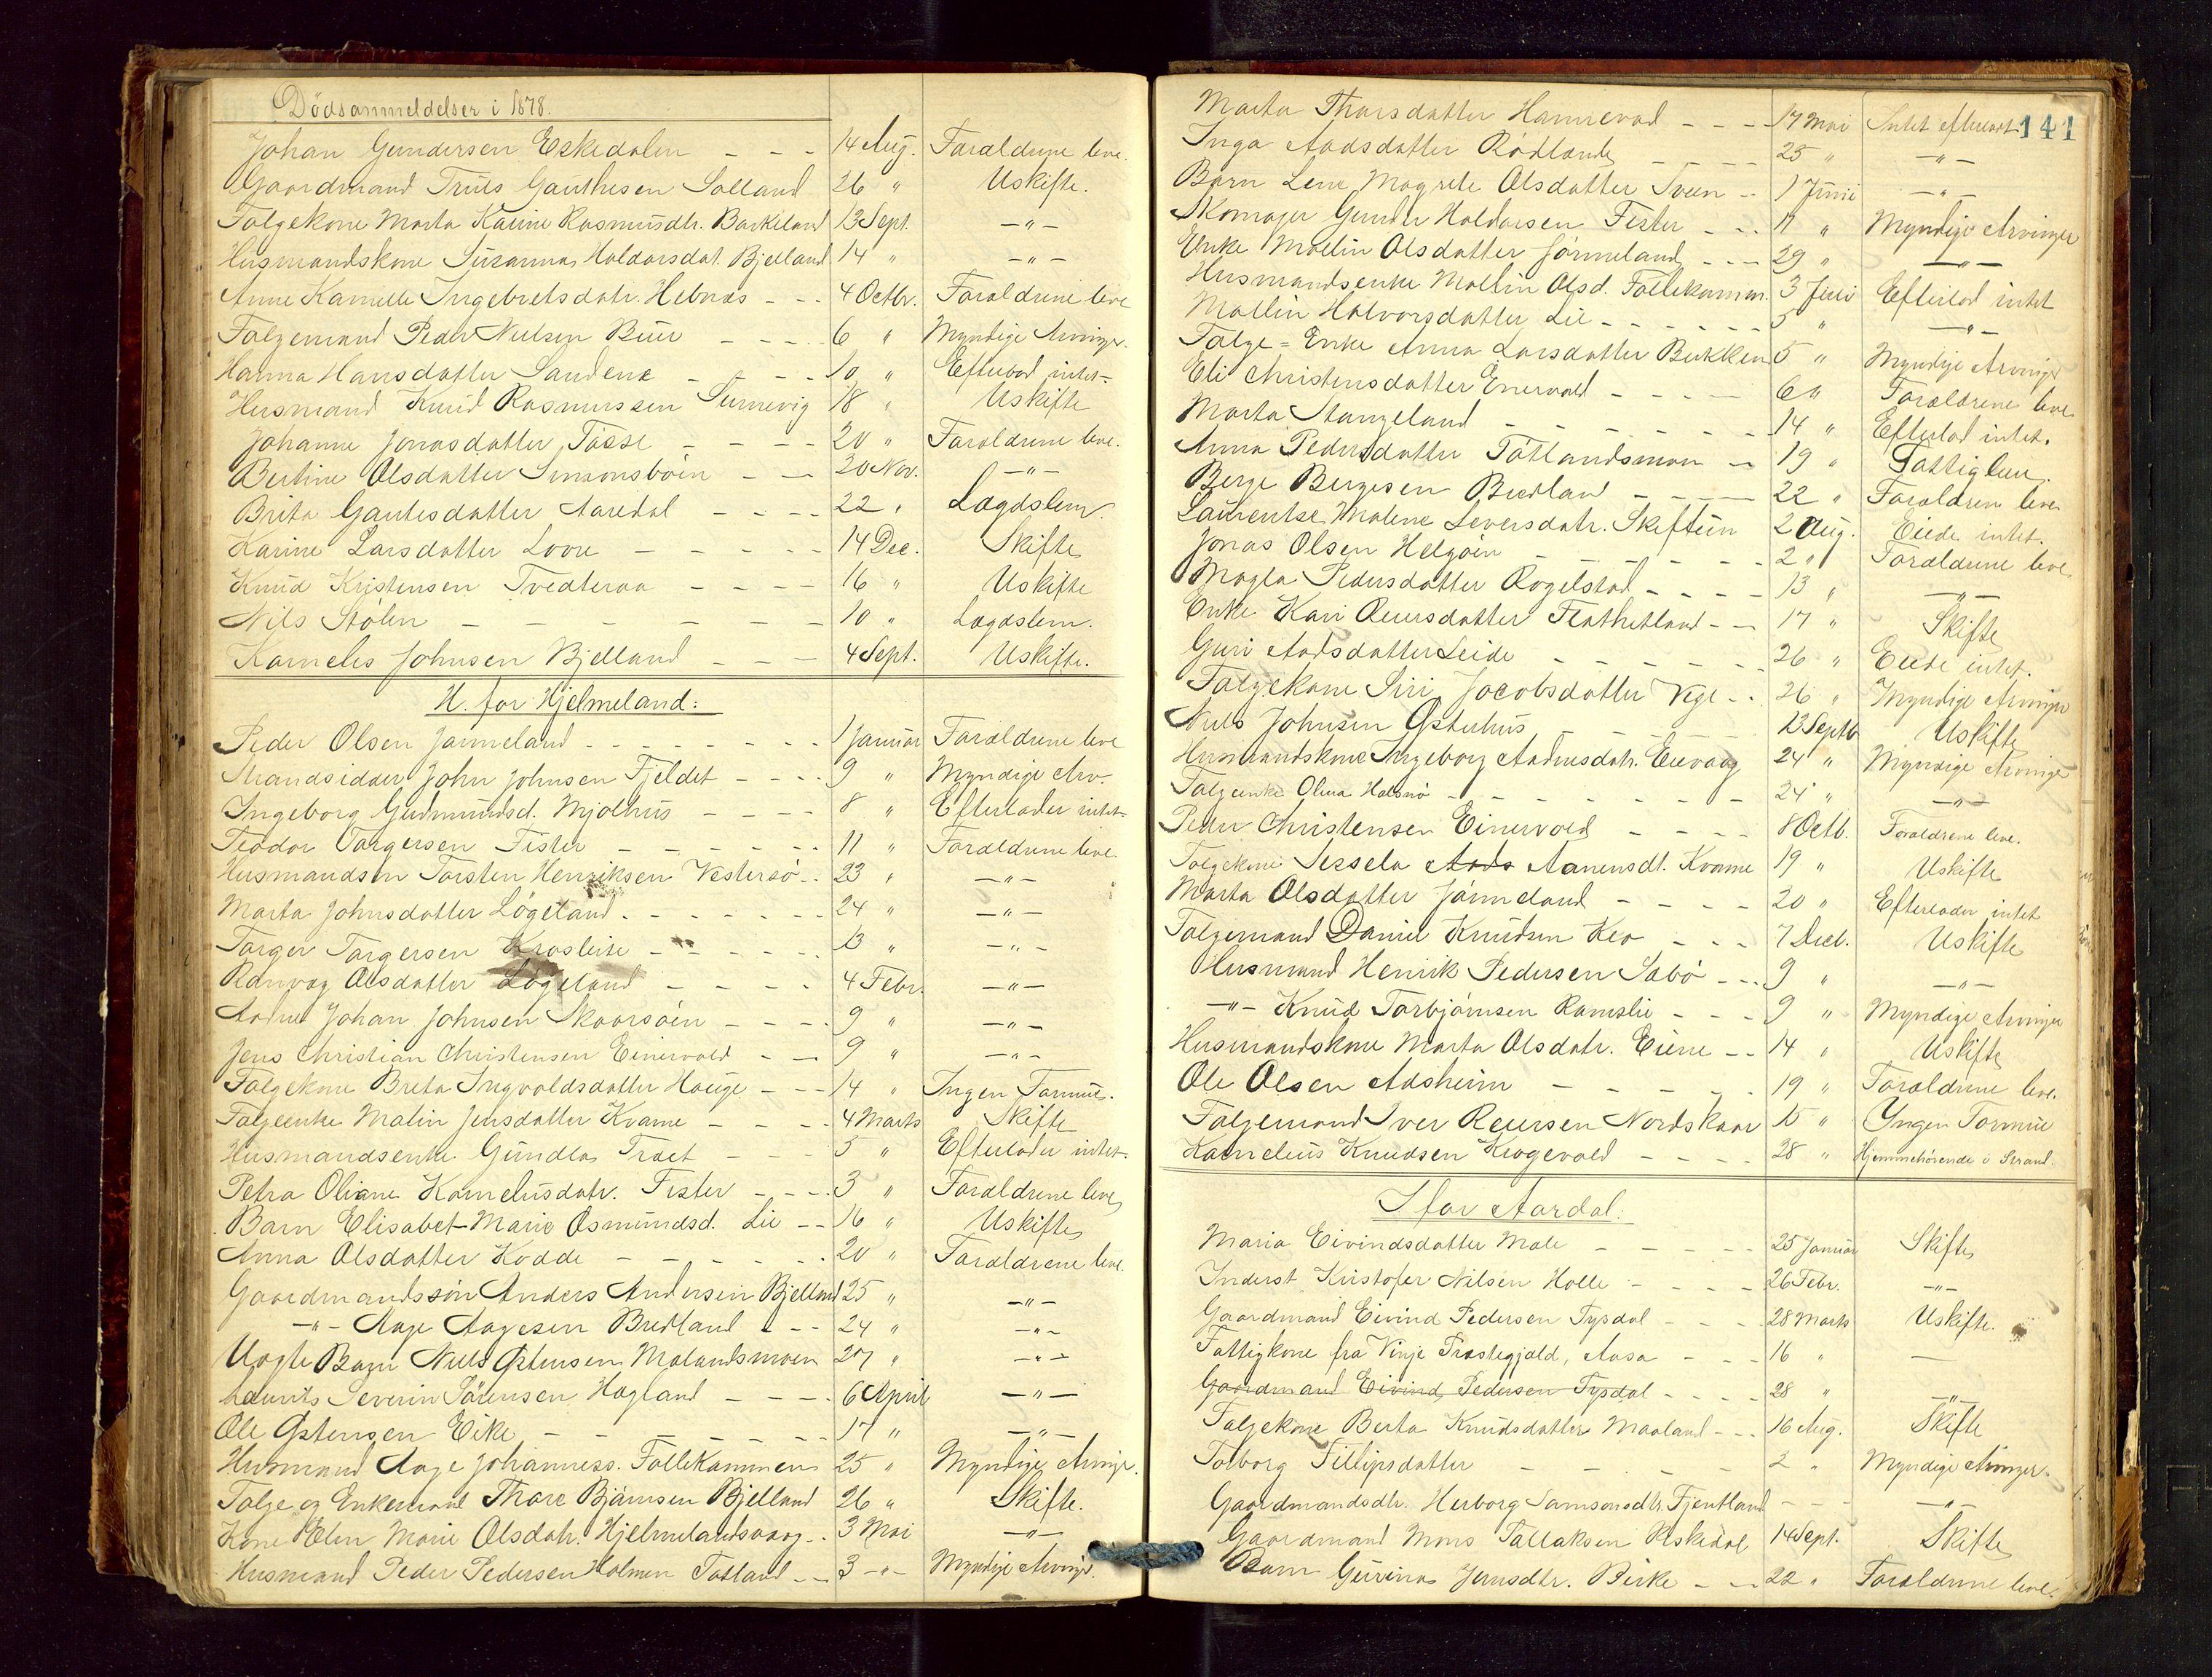 Dödsanmeldelser i 1878.
Johan Gundersen Eskedalen - - - 14 Aug. Foraldrene leve.
Gaardmand Truls Gauthesen Solland 26 " Uskifte.
Folgekone Marta Karine Rasmusdtr. Barkeland 13 Sept. -"-
Husmandskone Susanna Haldorsdat. Bjelland 14 " -"-
Anne Kamelle Ingebretsdatr. Hebnes - - 4 Octbr. Foraldrene leve
Folgemand Peder Nielsen Bue - - - 6 " Myndige Arvinger.
Hanna Hansdatter Sandene - - - 10 " Efterlod intet
Husmand Knud Rasmussen Sunnevig 18 " Uskifte
Johanne Jonasdatter Tösse - - - - 20 " Foraldrene leve.
Bertine Olsdatter Simonsböen - - 20 Nov. -"-
Brita Gautesdatter Aaredal - - - - 22 " Lagdslem.
Karine Larsdatter Lovre - - - - - 14 Dec. Skifte
Knud Kristensen Tvedteraa - - - - 16 " Uskifte
Nils Stölen - - - - - - - 10 " Lagdslem.
Kornelis Johnsen Bjelland - - - 4 Sept. Uskifte.
H. for Hjelmeland:
Peder Olsen Jønneland - - - - - - - 1 Januar Foraldrene leve
Mandsidder John Johnsen Fjeldet - - - - 9 " Myndige Arv.
Ingeborg Gudmundsd. Mjölhus - - - - 8 " Efterlader intet
Teodor Torgersen Fister - - - - - - 11 " Foraldrene leve
Husmandsn Torsten Henriksen Vestersö - - 23 " -"-
Marta Johnsdatter Lögeland - - - - - - 24 " -"-
Torger Torgersen Krosleite - - - - - - 13 " -"-
Ranvog Olsdatter Lögeland - - - - 4 Febr. -"-
Aadne Johan Johnsen Skaarsöen - - - - 9 " -"-
Jens Christian Christensen Einervold - - 9 " -"-
Folgekone Breta Ingvoldsdatter Hauge - - - 14 " Ingen Formue.
Folgeenke Malin Jensdatter Kvame - - - - 4 Marts Skifte
Husmandsenke Gundla Træet - - - 5 " Efterlader intet.
Petra Oliane Kornelusdatr. Fister - - - 3 " Foraldrene leve
Barn Elisabet Marie Osmundsd. Lie - - 16 " Uskifte
Anna Olsdatter Kodde - - - - - - 20 " Foraldrene leve.
Gaardmandssön Anders Andersen Bjelland 25 " -"-
-"- Aage Aagesen Bredland - - - 24 " -"-
Uægte Barn Niels Östensen Molandsmoen 27 " -"-
Laurits Severin Sörensen Hagland - - - - 6 April -"-
Ole Östensen Eike - - - - - - - 17 " -"-
Husmand Aage Johanness. Follekammen 25 " Myndige Arvinger.
Folge og Enkemand Thore Björnsen Bjelland 26 " Skifte.
Kone Elen Marie Olsdatr. Hjelmelandsvaag - - 3 Mai -"-
Husmand Peder Pedersen Holmen Totland - - 3 -"- Myndige Arvinger.
141
Marta Tharsdatter Hannevad - - - 17 Mai Intet efterladt
Inga Aadsdatter Rödland - - - - 25 " -"-
Barn Lene Magrete Olsdatter Sveen - - 1 Juni -"-
Skomager Gunder Haldorsen Fister - - - 11 " Myndige Arvinger
Enke Mallin Olsdatter Jönneland - - - 29 " -"-
Husmandsenke Mallin Olsd. Follekammen. 3 Juli Efterlod intet
Mallin Halvorsdatter Lie - - - - - - 5 " -"-
Folge-Enke Anna Larsdatter Bukken 5 " Myndige Arvinger
Eli Christensdatter Enervold - - - - 6 " Foraldrene leve
Marta Stangeland - - - - - - - 14 " Efterlod intet.
Anna Pedersdatter Tötlandsmoen - - 19 " Fattiglem.
Berge Bergesen Bredland - - - - 22 " Foraldren leve
Laurentse Malene Seversdatr. Skiftun 2 Aug. Eiede intet.
Jonas Olsen Helgöen - - - - - - 2 " Foraldrene leve
Magla Pedersdatter Rogelstad - - - - 13 " -"-
Enke Kari Reiersdatter Flathetland - - 17 " Skifte
Guri Aadsdatter Leide - - - - - - 26 " Eiede intet.
Folgekone Siri Jacobsdatter Vege - - 26 " Myndige Arvinger
Niels Johnsen Östehus - - - - - 13 Septb Uskifte
Husmandskone Ingeborg Aadnesdatr. Eievaag 24 " Myndige Arvinger
Folgeenke Olina Halsnö - - - - - - - 24 " -"-
Peder Christensen Einervold - - - - 8 Octb. Foraldrene leve.
Folgekone Sessela Aads Aanensdt. Kvame 19 " Uskifte
Marta Olsdatter Jönneland - - - - 20 " Efterlader intet
Folgemand Daniel Knudsen Kleo - - - 7 Decb. Uskifte
Husmand Henrik Pedersen Sabö - - - 9 " -"-
-"- Knud Torbjörnsen Ramslie - - - 9 " Myndige Arvinger
Husmandskone Marta Olsdatr. Eiene - - 14 " Uskifte
Ole Olsen Adsheim - - - - - 19 " Foraldrene leve.
Folgemand Iver Reiersen Nordskaar 15 " Yngen Formue
Kornelius Knudsen Krogevold - - - - 28 " Hjemmehørende i Strand.
I for Aardal:
Maria Eivindsdatter Mæle - - - - - 25 Januar Skifte
Inderst Kristofer Nilsen Holle - - - - 26 Febr. -"-
Gaardmand Eivind Pedersen Tysdal - - - - 28 Marts Uskifte.
Fattigkone fra Vinje Prestegjæld, Aasa - - - 16 " -
Gaardmand Eivind Pedersen Tysdal - - - - 28 " -"-
Folgekone Berta Knudsdatter Maaland - - - 16 Aug. Skifte
Tolborg Fillipsdatter - - - - - 2 " Myndige Arvinger.
Gaardmandsdtr. Herborg Samsonsdtr. Fjentland - - - -"-
Gaardmand Mons Tallaksen Eskedal 14 Sept. Skifte
Barn Gurina Jensdtr. Birke - - - 22 " Foraldrene leve.